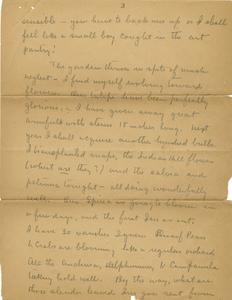 3
sensible – you have to back me up or I shall
feel like a small boy caught in the
pantry!
The garden thrives in spite of much
neglect – I find myself evolving toward
flowers. The tulips have been perfectly
glorious, & I have given away great
armfuls with stems 18 inches long. Next
year I shall acquire another hundred bulbs.
I transplanted snaps, the Indian Hill flowers
(what are they?) and the salvia and
petunia tonight – all doing wonderfully
well. The Spirea are going to bloom in
a few days, and the first Iris are out.
I have 20 Dwarf Pear
& are blooming, like a regular orchard.
All the Anchusa, Delphiniums, & Campanula
taking hold well. By the way, what are
those slender leaved you sent from